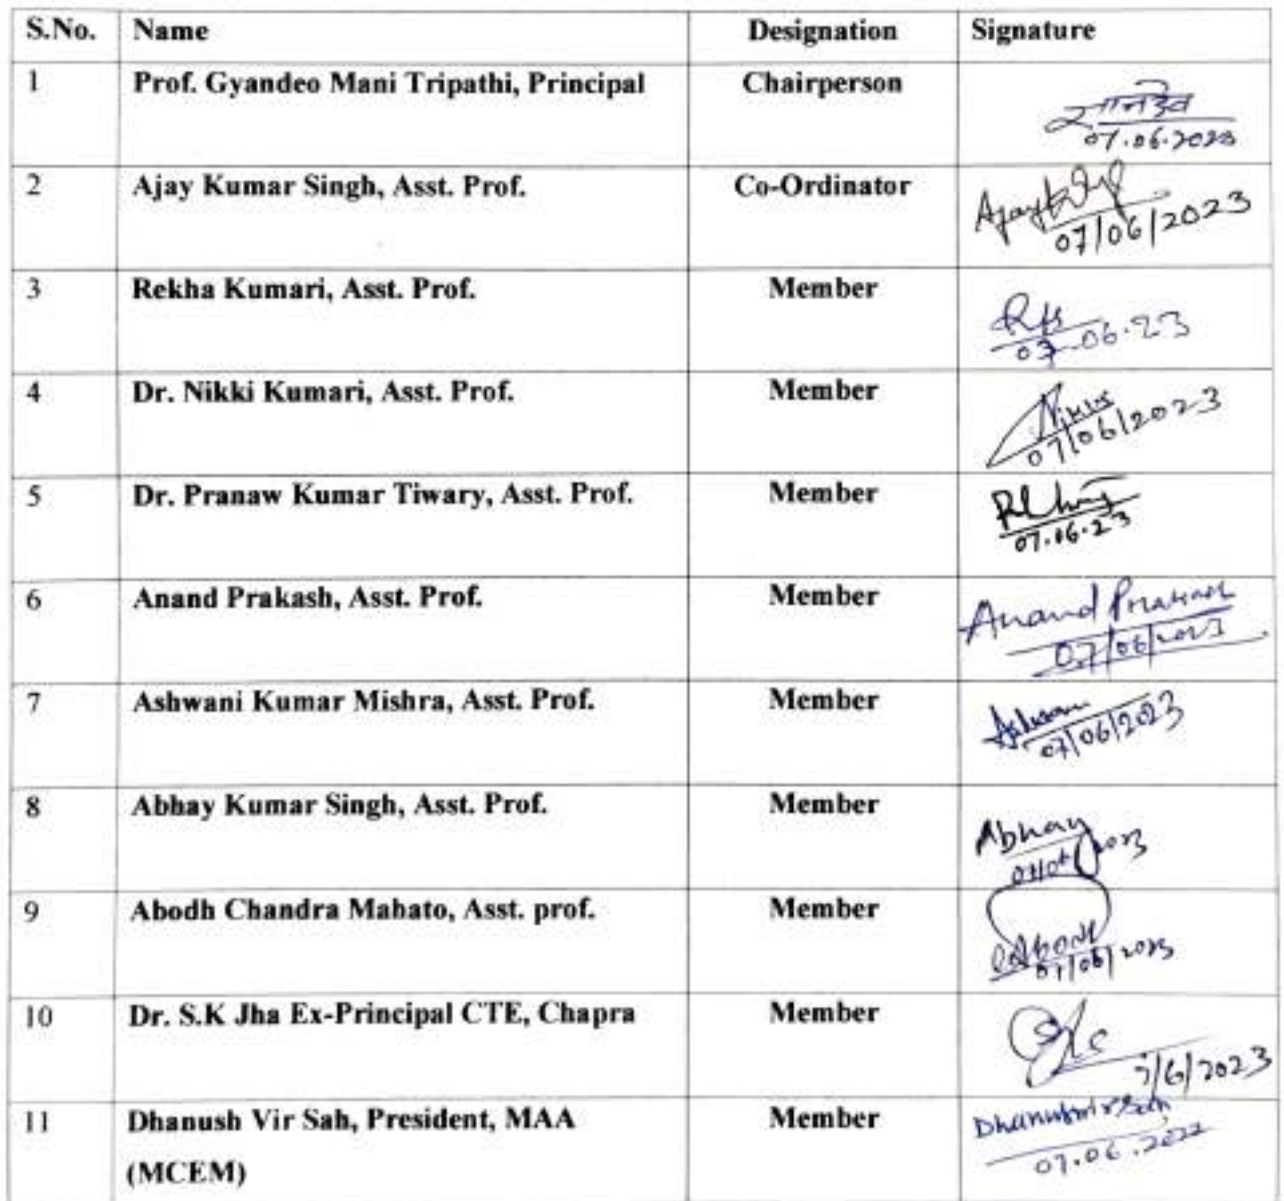 S.No. Name Designation Signature
1 Prof. Gyandeo Mani Tripathi, Principal Chairperson
ज्ञानदेव
07.06.2023
2 Ajay Kumar Singh, Asst. Prof. Co-Ordinator
07/06/2023
3 Rekha Kumari, Asst. Prof. Member
07.06.23
4 Dr. Nikki Kumari, Asst. Prof. Member
Nikki
07/06/2023
5 Dr. Pranaw Kumar Tiwary, Asst. Prof. Member
07.06.23
6 Anand Prakash, Asst. Prof. Member
Anand Prakash
07/06/2023
7 Ashwani Kumar Mishra, Asst. Prof. Member
07/06/2023
8 Abhay Kumar Singh, Asst. Prof. Member
Abhay
07/06/2023
9 Abodh Chandra Mahato, Asst. prof. Member
Abodh
07/06/2023
10 Dr. S.K Jha Ex-Principal CTE, Chapra Member
7/6/2023
11 Dhanush Vir Sah, President, MAA Member
(MCEM)
Dhanushvir Sah